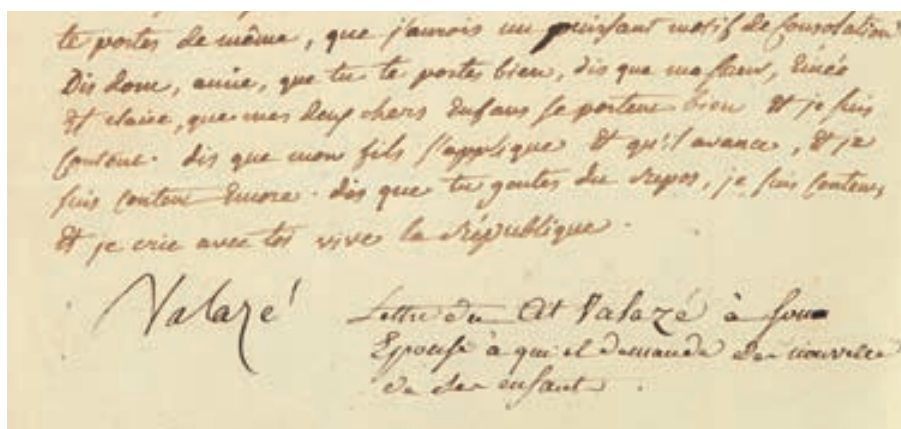 te portes de même, que j'aurois un puissant motif de Consolation
Dis donc, amie, que tu te portes bien, dis que ma sœur, Enée
Et claire, que mes deux chers Enfans se portent bien Et je suis
Content. dis que mon fils s'applique Et qu'il avance, Et je
suis Content Encore. dis que tu goutes du repos, je suis Content,
Et je crie avec toi vive la République.
Valazé
Lettre du Cit Valazé à son
Epouse à qui il demande des nouvelles
de ses enfants.